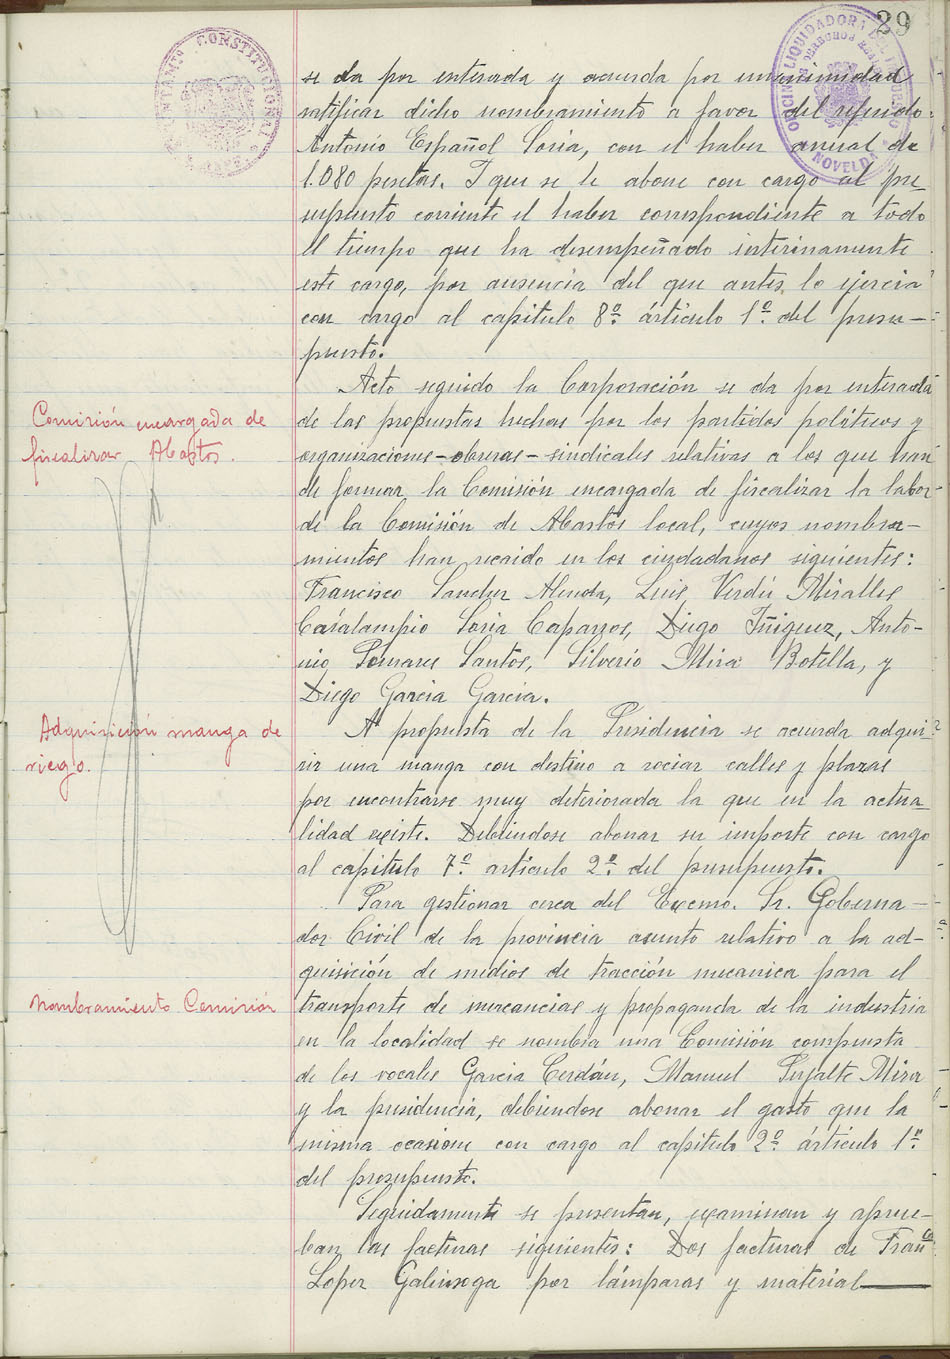 29
AYUNTAMIENTO CONSTITUCIONAL
OFICINA LIQUIDADORA DEL
DERECHOS REALES
NOVELDA
se da por enterada y acuerda por unanimidad
ratificar dicho nombramiento a favor del referido
Antonio Español Soria, con el haber anual de
1.080 pesetas. I que se le abone con cargo al pre_
supuesto corriente el haber correspondiente a todo
el tiempo que ha desempeñado interinamente
este cargo, por ausencia del que antes lo ejercia
con cargo al capitulo 8º. árticulo 1º. del presu-
puesto.
Acto seguido la Corporación se da por enterada
Comisión encargada de
fiscalizar Abastos.
de las propuestas hechas por los partidos políticos y
organizaciones-obreras-sindicales relativas a los que han
de formar la Comisión encargada de fiscalizar la labor
de la Comisión de Abastos local, cuyos nombra-
mientos han recaido en los ciudadanos siguientes:
Francisco Sanchez Alenda, Luis Verdú Miralles
Caralampio Soria Caparros, Diego Iñiguez, Anto-
nio Pomares Santos, Silverio Mira Botella, y
Diego Garcia Garcia.
Adquisición manga de
riego.
A propuesta de la Presidencia se acuerda adqui
rir una manga con destino a rociar calles y plazas
por encontrarse muy deteriorada la que en la actua_
lidad existe. Debiendose abonar su importe con cargo
al capitulo 7º. articulo 2º. del presupuesto.
Para gestionar cerca del Excmo. Sr. Goberna-
dor Civil de la provincia asunto relativo a la ad-
quisición de medios de tracción mecanica para el
Nombramiento Comisión
transporte de mercancias y propaganda de la industria
en la localidad se nombra una Comisión compuesta
de los vocales Garcia Cerdán, Manuel Pujalte Mira
y la presidencia, debiendose abonar el gasto que la
misma ocasione con cargo al capitulo 2º. árticulo 1º.
del presupuesto.
Seguidamente se presentan, examinan y aprue-
ban las facturas siguientes: Dos facturas de Franco
Lopez Galinsoga por lámparas y material